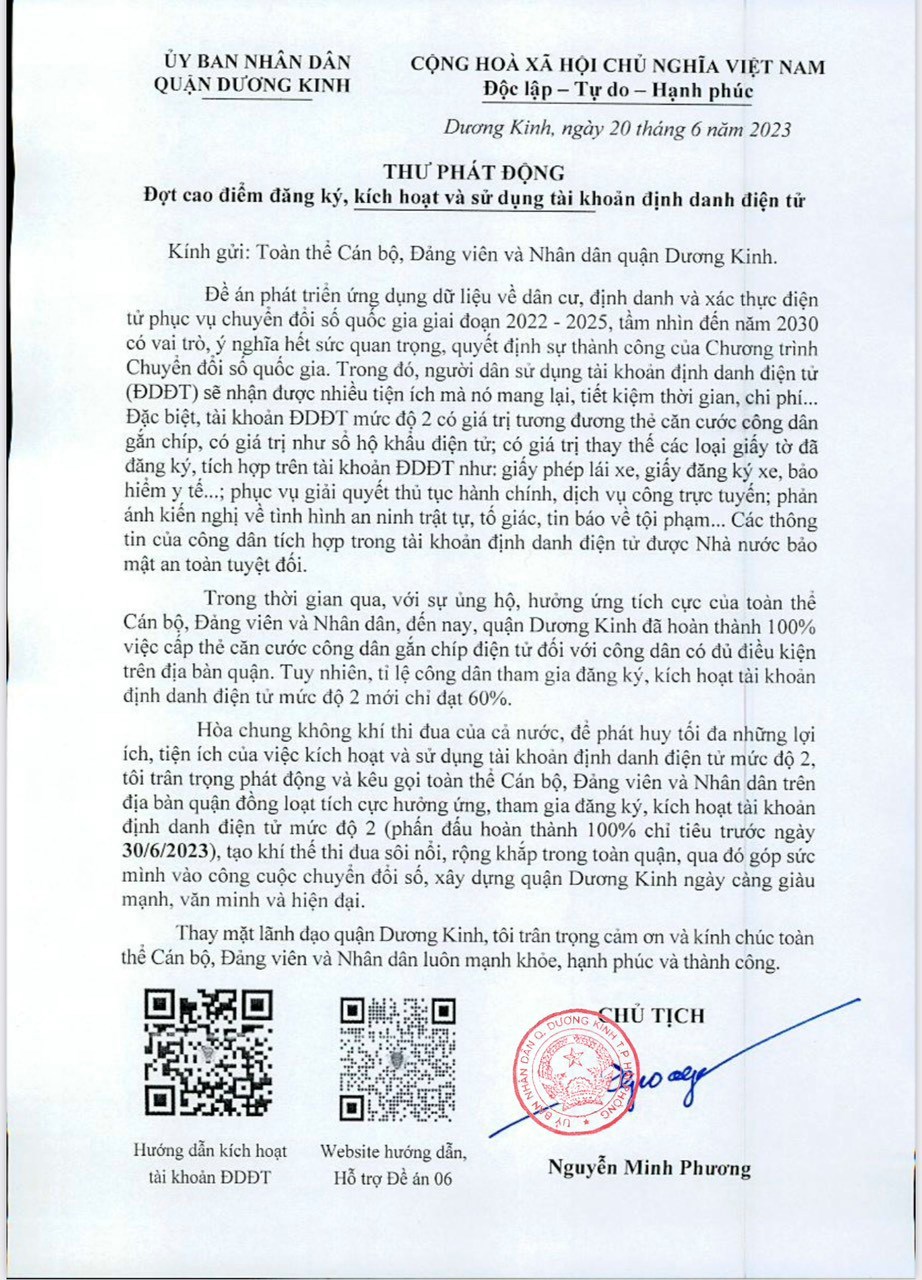 ỦY BAN NHÂN DÂN
QUẬN DƯƠNG KINH
CỘNG HOÀ XÃ HỘI CHỦ NGHĨA VIỆT NAM
Độc lập – Tự do – Hạnh phúc
Dương Kinh, ngày 20 tháng 6 năm 2023
THƯ PHÁT ĐỘNG
Đợt cao điểm đăng ký, kích hoạt và sử dụng tài khoản định danh điện tử
Kính gửi: Toàn thể Cán bộ, Đảng viên và Nhân dân quận Dương Kinh.
Đề án phát triển ứng dụng dữ liệu về dân cư, định danh và xác thực điện
tử phục vụ chuyển đổi số quốc gia giai đoạn 2022 - 2025, tầm nhìn đến năm 2030
có vai trò, ý nghĩa hết sức quan trọng, quyết định sự thành công của Chương trình
Chuyển đổi số quốc gia. Trong đó, người dân sử dụng tài khoản định danh điện tử
(ĐDĐT) sẽ nhận được nhiều tiện ích mà nó mang lại, tiết kiệm thời gian, chi phí...
Đặc biệt, tài khoản ĐDĐT mức độ 2 có giá trị tương đương thẻ căn cước công dân
gắn chíp, có giá trị như sổ hộ khẩu điện tử; có giá trị thay thế các loại giấy tờ đã
đăng ký, tích hợp trên tài khoản ĐDĐT như: giấy phép lái xe, giấy đăng ký xe, bảo
hiểm y tế...; phục vụ giải quyết thủ tục hành chính, dịch vụ công trực tuyến; phản
ánh kiến nghị về tình hình an ninh trật tự, tố giác, tin báo về tội phạm... Các thông
tin của công dân tích hợp trong tài khoản định danh điện tử được Nhà nước bảo
mật an toàn tuyệt đối.
Trong thời gian qua, với sự ủng hộ, hưởng ứng tích cực của toàn thể
Cán bộ, Đảng viên và Nhân dân, đến nay, quận Dương Kinh đã hoàn thành 100%
việc cấp thẻ căn cước công dân gắn chíp điện tử đối với công dân có đủ điều kiện
trên địa bàn quận. Tuy nhiên, tỉ lệ công dân tham gia đăng ký, kích hoạt tài khoản
định danh điện tử mức độ 2 mới chỉ đạt 60%.
Hòa chung không khí thi đua của cả nước, để phát huy tối đa những lợi
ích, tiện ích của việc kích hoạt và sử dụng tài khoản định danh điện tử mức độ 2,
tôi trân trọng phát động và kêu gọi toàn thể Cán bộ, Đảng viên và Nhân dân trên
địa bàn quận đồng loạt tích cực hưởng ứng, tham gia đăng ký, kích hoạt tài khoản
định danh điện tử mức độ 2 (phấn đấu hoàn thành 100% chỉ tiêu trước ngày
30/6/2023), tạo khí thế thi đua sôi nổi, rộng khắp trong toàn quận, qua đó góp sức
mình vào công cuộc chuyển đổi số, xây dựng quận Dương Kinh ngày càng giàu
mạnh, văn minh và hiện đại.
Thay mặt lãnh đạo quận Dương Kinh, tôi trân trọng cảm ơn và kính chúc toàn
thể Cán bộ, Đảng viên và Nhân dân luôn mạnh khỏe, hạnh phúc và thành công.
CHỦ TỊCH
ỦY BAN NHÂN DÂN Q. DƯƠNG KINH T.P HẢI PHÒNG
Hướng dẫn kích hoạt
tài khoản ĐDĐT
Website hướng dẫn,
Hỗ trợ Đề án 06
Nguyễn Minh Phương